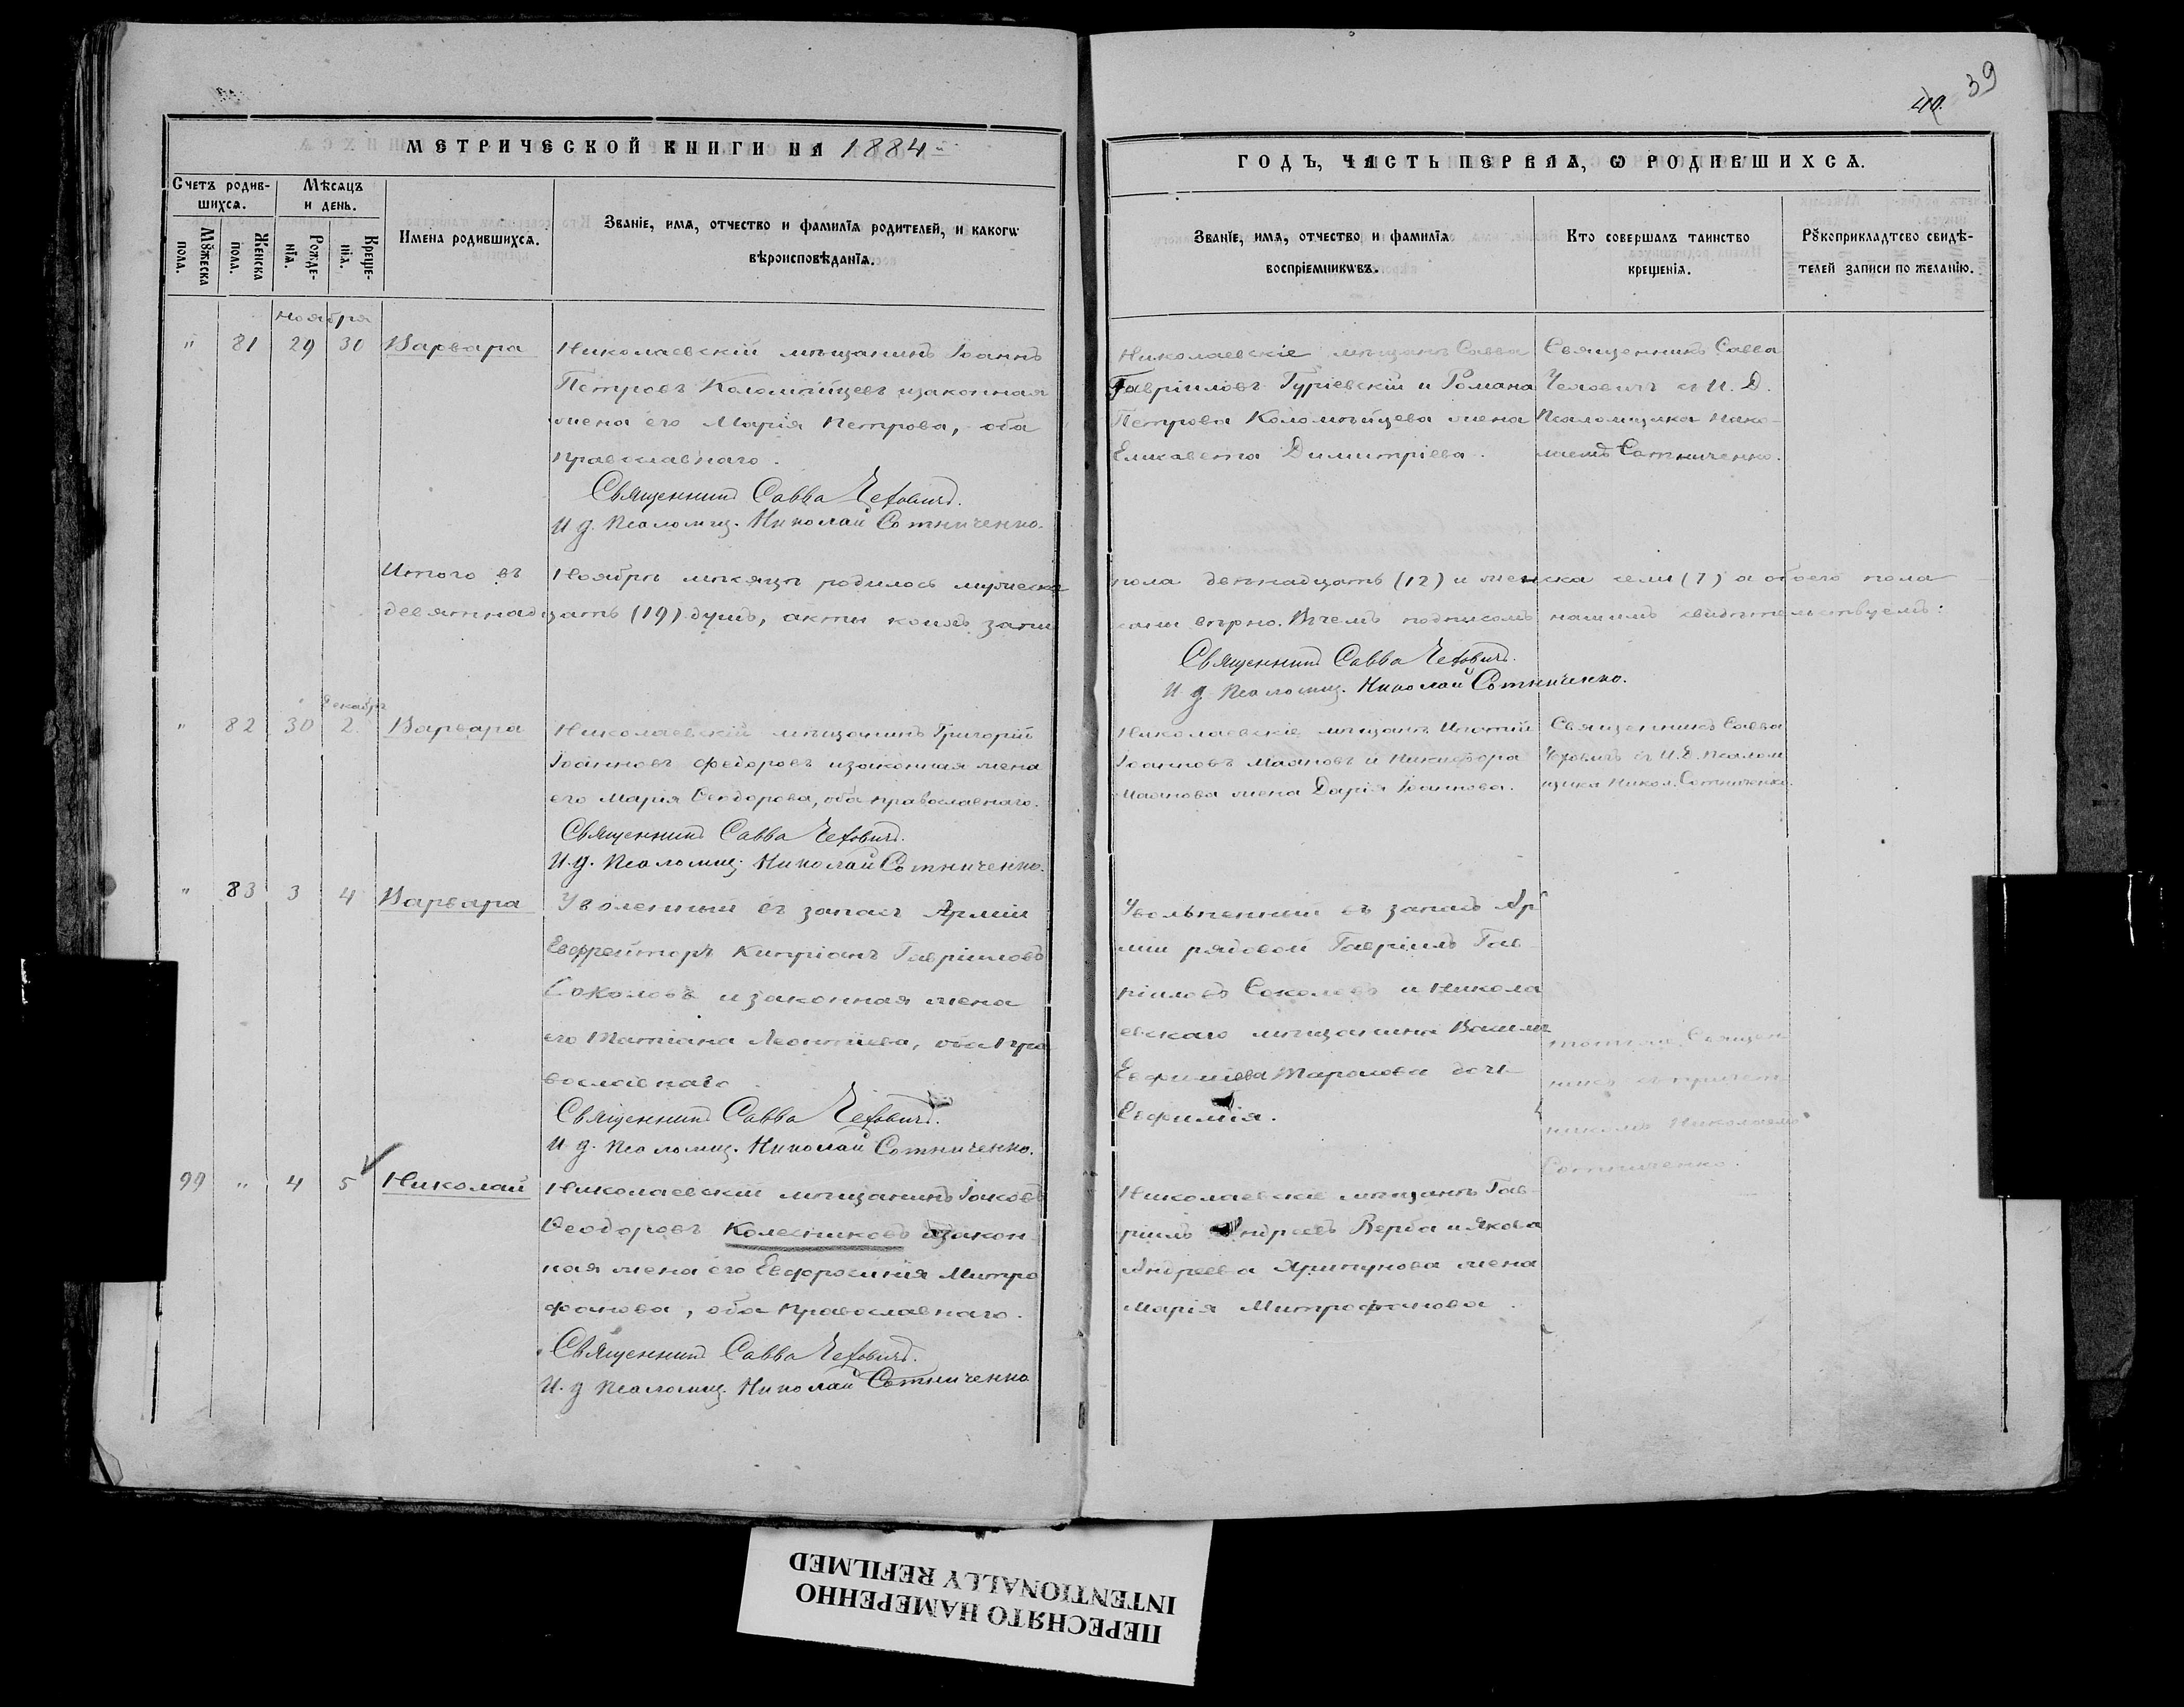 40. 39
МЕТРИЧЕСКОЙ КНИГИ НА 1884
ГОДЪ, ЧАСТЬ ПЕРВАЯ, Ѡ РОДИВШИХСѦ.
Счетъ родив-
шихсѧ.
Мѣсѧцъ
и день.
Мꙋжеска
пола.
Женска
пола.
Рожде-
нїѧ.
Креще-
нїѧ.
Имена родившихсѧ.
Званіе, имѧ, отчество и фамилїѧ родителей, и какогѡ
вѣроисповѣданїѧ.
Званїе, имѧ, отчество и фамилїѧ
воспрїемникѡвъ.
Кто совершалъ таинство
крещенїѧ.
Рꙋкоприкладтсво свидѣ-
телей записи по желанїю.
ноября
" 81 29 30 Варвара
Николаевскій мѣщанинъ Іоаннъ
Петровъ Коломѣйцевъ изаконная
жена его Марія Петрова, оба
православнаго.
Священникъ Савва Чехович.
И д. Псаломщ. Николай Сотниченко.
Николаевскіе мѣщане Савва
Гавріиловъ Гуріевскій и Романа
Петрова Коломѣйцева жена
Елисавета Димитріева.
Священникъ Савва
Чехович съ И. Д.
Псаломщика Нико-
лаемъ Сотниченко.
Итого въ Ноябрѣ мѣсяцѣ родилось мужеска пола двѣнадцать (12) и женска семь (7) а обоего пола
девятнадцать (19) душъ, акты коихъ запи
саны вѣрно. Въчемъ подписомъ нашимъ свидѣтельствуемъ:
Священникъ Савва Чехович.
И д Псаломщ. Николай Сотниченко.
декабря
" 82 30 2 Варвара
Николаевскій мѣщанинъ Григорій
Іоанновъ Федоровъ изаконная жена
его Марія Ѳеодорова, оба православнаго.
Священникъ Савва Чехович.
И.д. Псаломщ. Николай Сотниченко.
Николаевскіе мѣщане Игнатій
Іоанновъ и Никифора
жена Дарія Іоаннова.
Священникъ Савва
Чехович съ И.Д. Псалом
щика Никол. Сотниченко.
" 83 3 4 Варвара
Уволенный въ запасъ Арміи
Ефрейторъ Кипріанъ Гавріиловъ
Соколовъ изаконная жена
его Татіана Леонтіева, оба Пра
вославнаго
Священникъ Савва Чехович.
И д. Псаломщ. Николай Сотниченко.
Увольненный въ запасъ Ар
міи рядовой Гавріилъ Гав
ріиловъ Соколовъ и Никола
евскаго мѣщанина
Евфиміева дочь
Евфимія.
Священ
никъ съ причет
никомъ Николаемъ
Сотниченко.
99 " 4 5 Николай
Николаевскій мѣщанинъ Іаковъ
Ѳеодоровъ Колесниковъ изакон-
ная жена его Евфросинія Митро
фанова, оба Православнаго.
Священникъ Савва Чехович.
И. д Псаломщ. Николай Сотниченко
Николаевскіе мѣщане Гав-
ріилъ Андреевъ Верба и Якова
Андреева Хрипунова жена
Марія Митрофанова.
ПЕРЕСНЯТО НАМЕРЕННО
INTENTIONALLY REFILMED